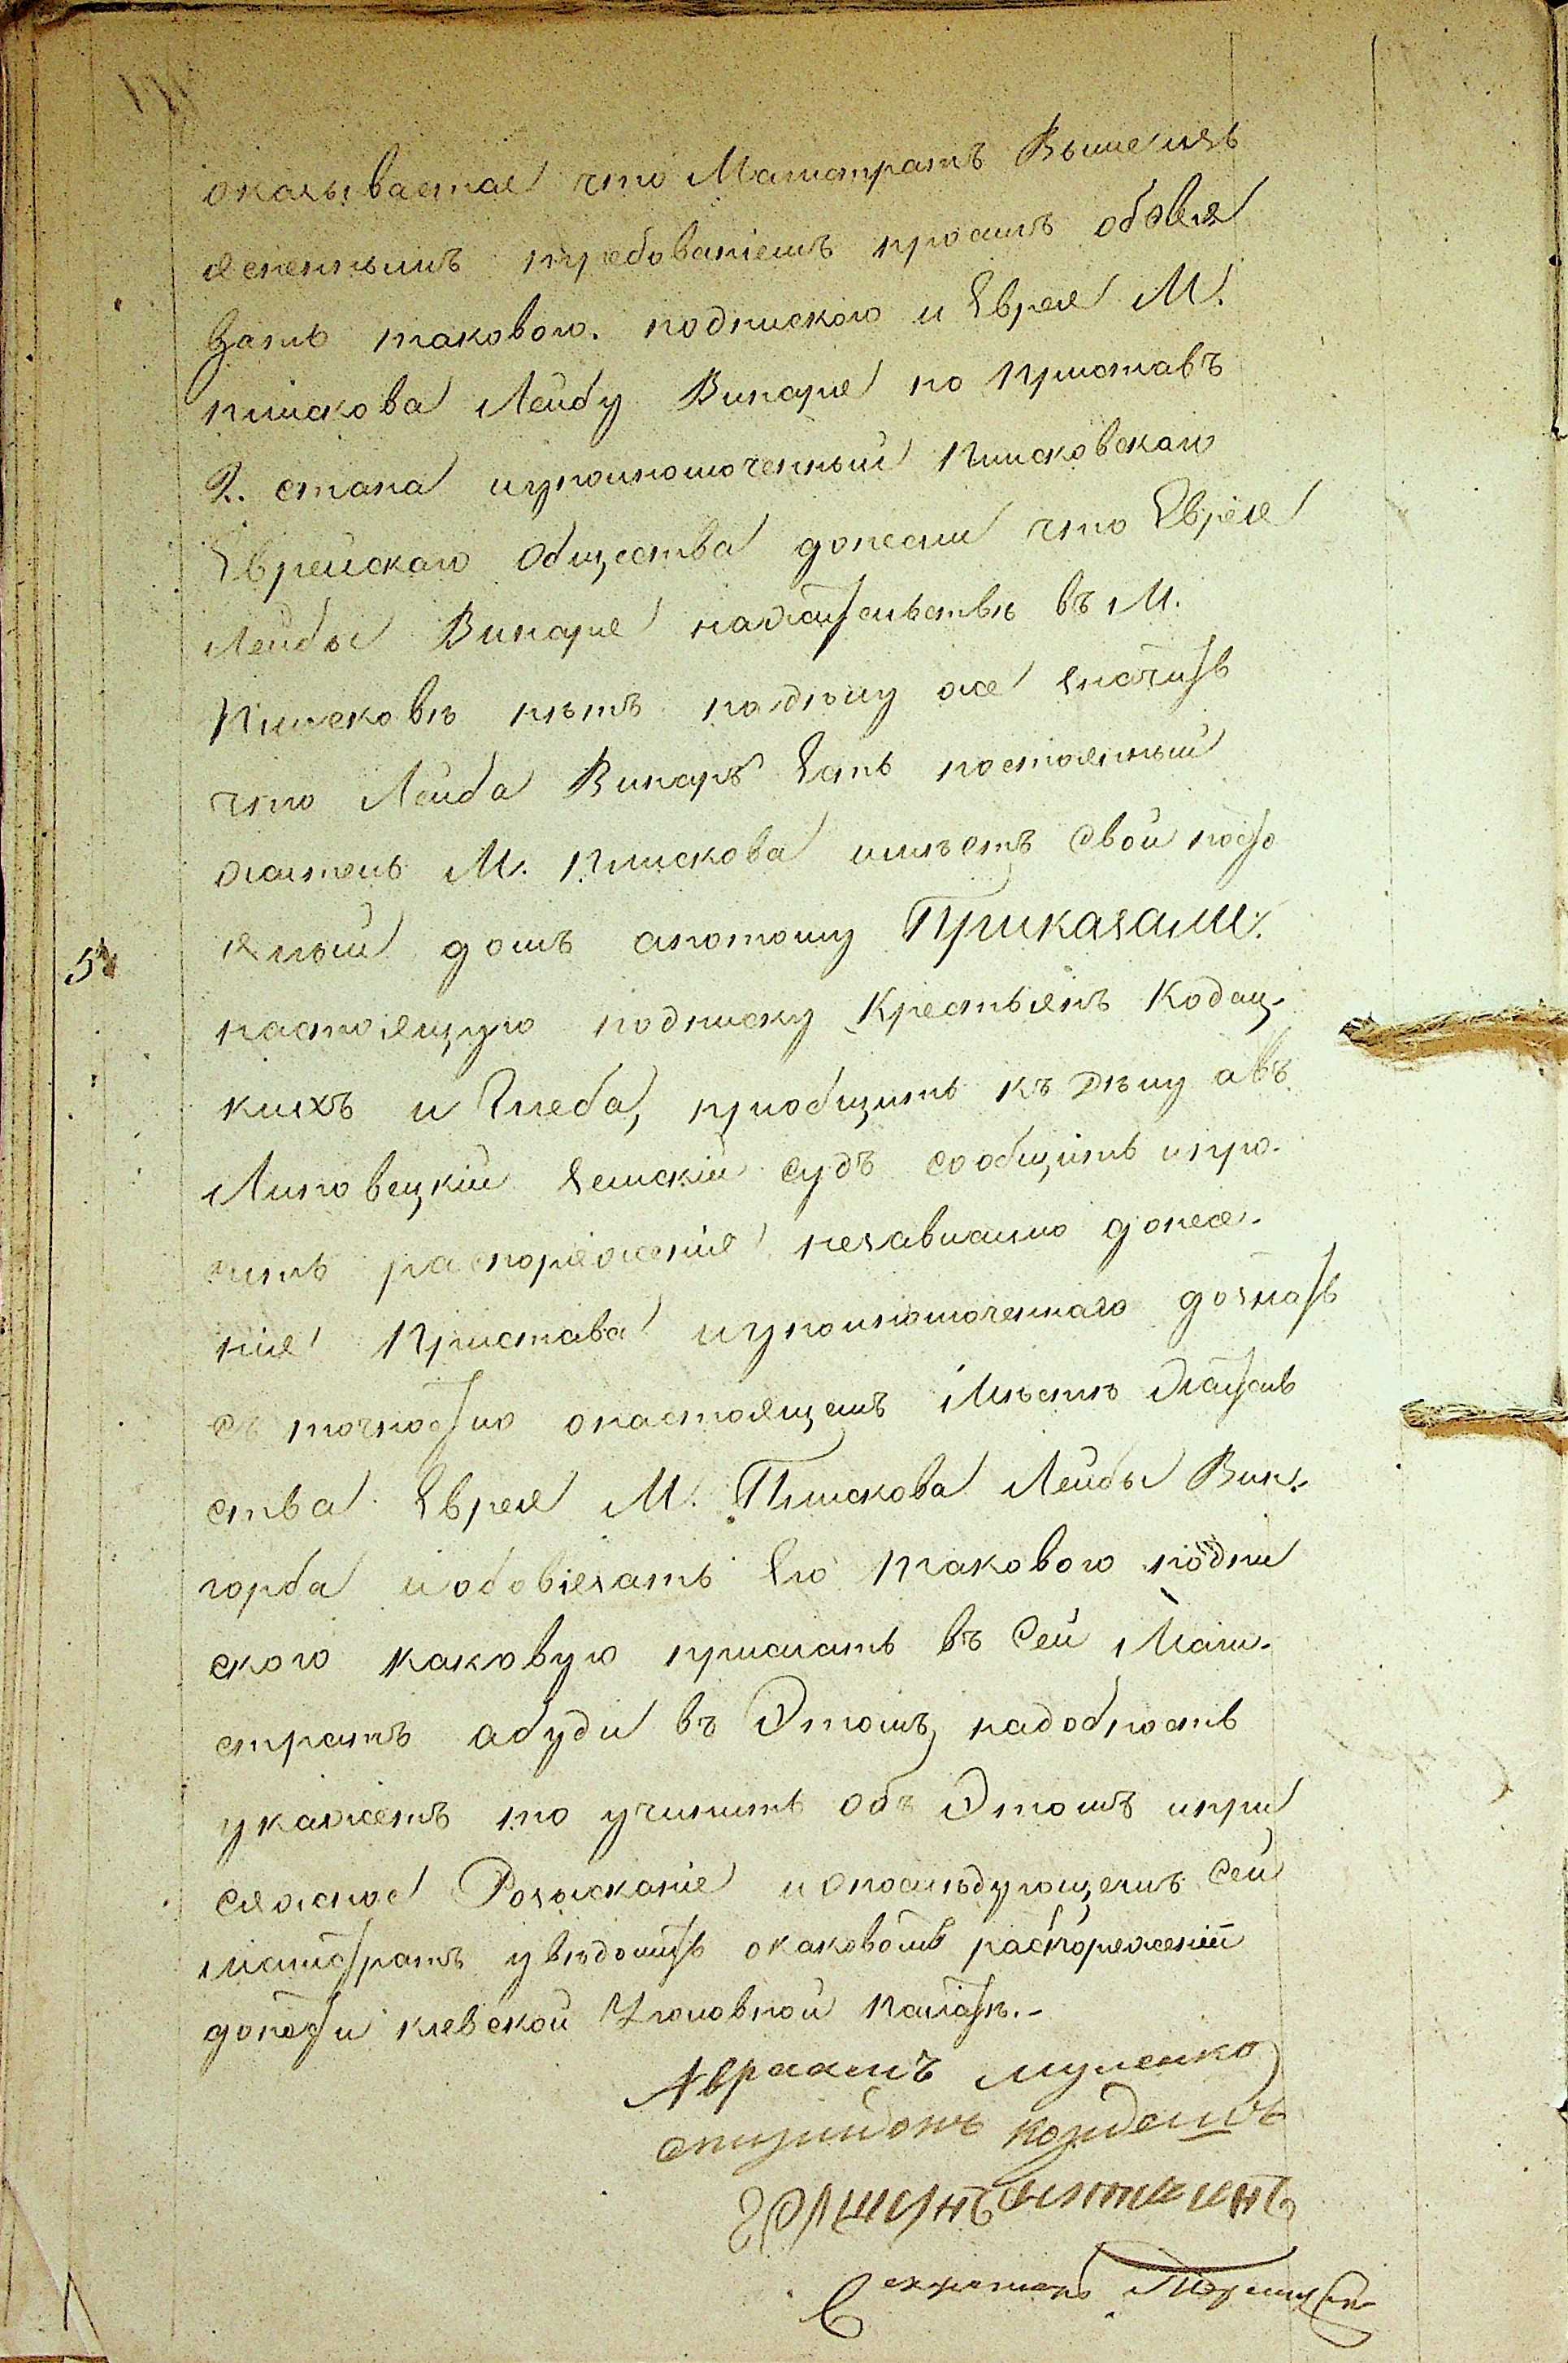 оказывается что Магистратъ Вышеизъ
ясненнымъ требованіемъ просилъ обовя
зать таковою подпискою и Еврея М.
пискова Лейбу Винаря но приставъ
2. стана иуполномоченный писковскаго
Еврейскаго Общества донесли что Еврея
Лейбы Винаря нажительствѣ въ М.
Писковѣ нѣтъ подѣлу же значитъ
что Лейба Винаръ Есть постоянный
житель М. пискова имѣетъ свой посто
янный домъ апотому Приказали:
5
настоящую подписку Крестьянъ Кодац-
кихъ и Глеба, приобщить къ дѣлу авъ
Липовецкій Земскій судъ сообщить ипро-
сить распоряженія независимо донесе-
нія Пристава иуполномоченнаго дознать
съ точностію онастоящемъ Мѣстѣ Жатель
ства Еврея М. Пискова Лейбы Вин-
горба иобовязать Его таковою подпи
скою каковую прислать въ сей Маги-
стратъ абуди въ Этомъ надобность
укажетъ то учинить объ Этомъ ипри
сяжное Розысканіе и опослѣдующемъ сей
магистратъ увѣдомить окаковомъ распоряженіи
донести кіевской Уголовной Палатѣ.-
Авраамъ
Секретарь